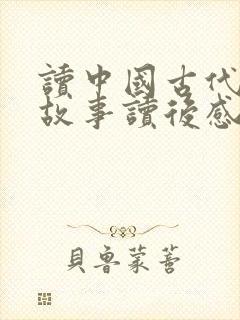 讀中國古代
故事讀後感
貝魯蒙蒼